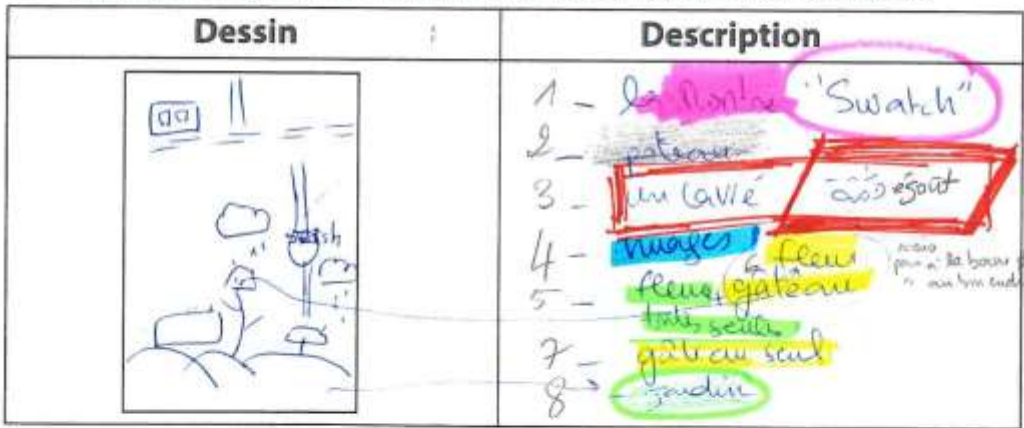 Dessin
Description
1 - la Montre "Swatch"
2 -
3 - un lavié égoût
4 - nuages fleur
5 - fleur gâteau
toutes seules
7 - gâteau seul
8 - jardin
swatsh